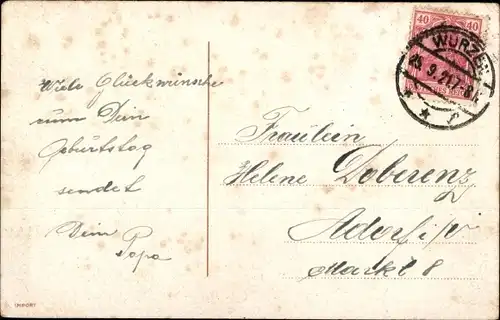 Viele Glückwünsche
zum Dein
Geburtstag
sendet
Dein Papa
IMPORT
40 40
WURZEN
25.9.21.7-8
Fräulein
Helene Doberenz
Adorf i/V
Markt 8